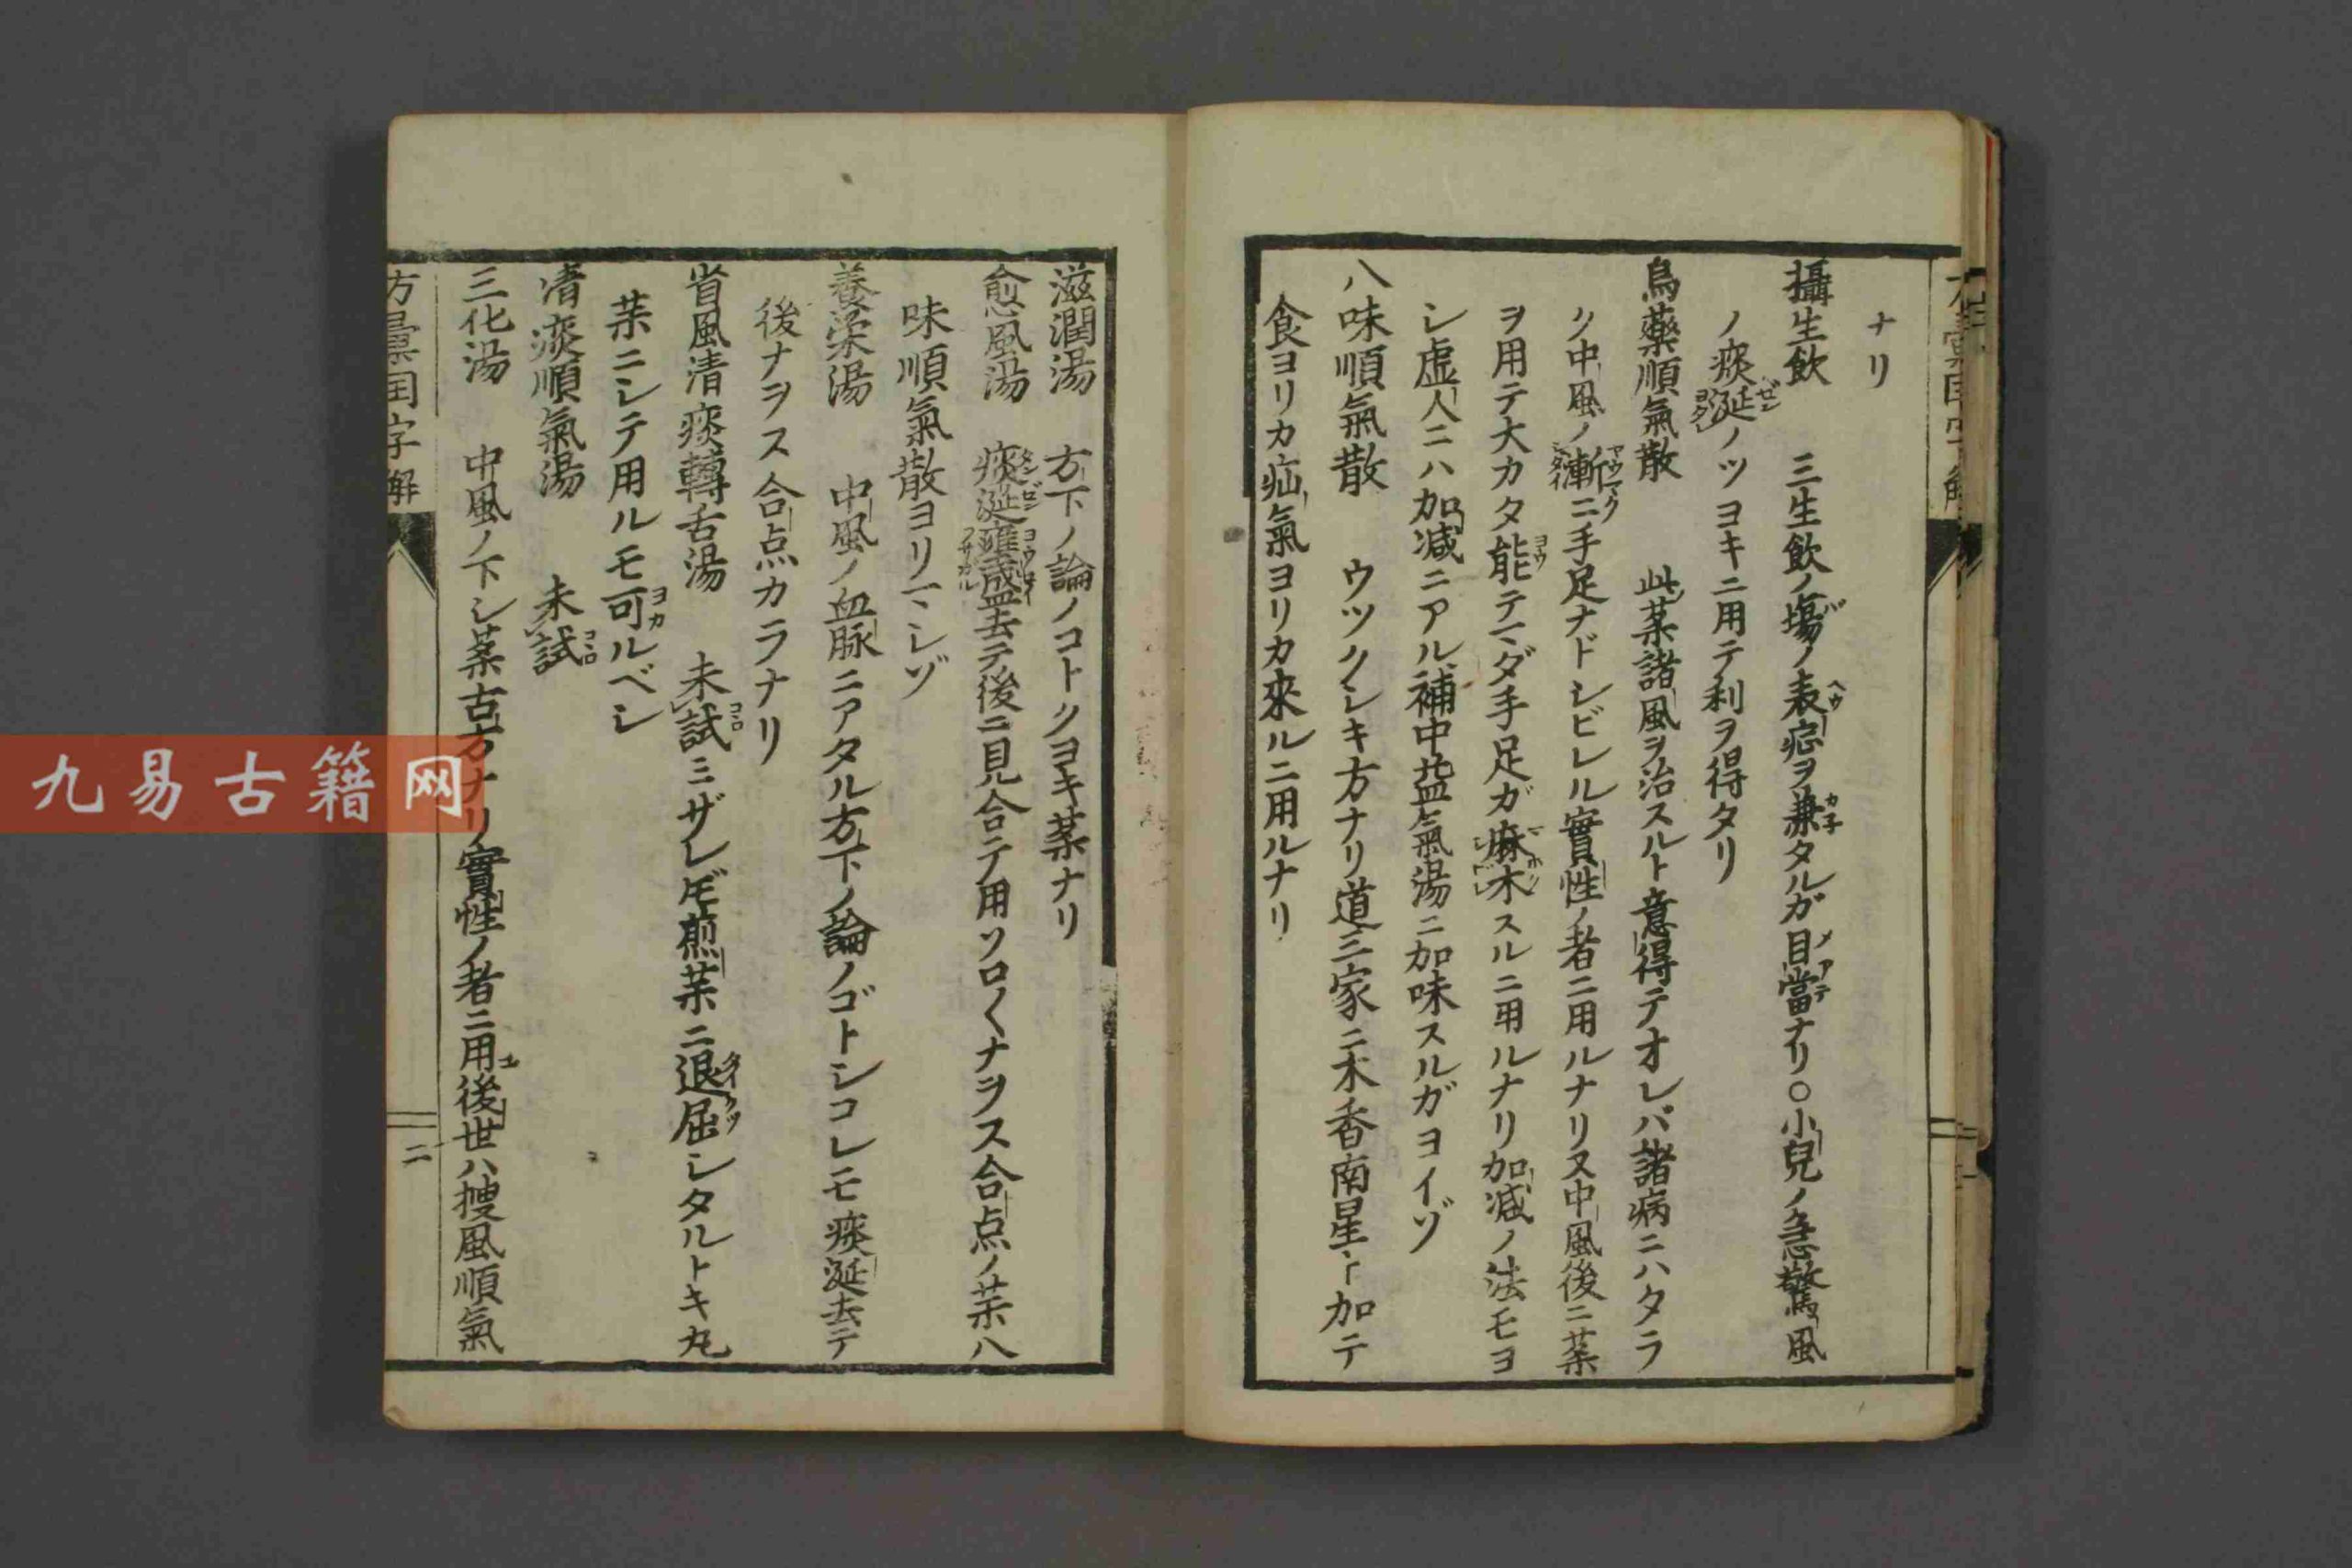 ナリ
攝生飲 三生飲ノ塲ノ表症ヲ兼タルガ目當ナリ○小兒ノ急驚風
ノ痰涎ノツヨキニ用テ利ヲ得タリ
烏藥順氣散 此藥諸風ヲ治スルト意得テオレバ諸病ニハタラ
ク中風ノ漸ニ手足ナドシビレル實性ノ者ニ用ルナリ又中風後ニ藥
ヲ用テ大カタ能テマダ手足ガ麻木スルニ用ルナリ加減ノ法モヨ
シ虚人ニハ加減ニアル補中益氣湯ニ加味スルガヨイゾ
八味順氣散 ウツクシキ方ナリ道三家ニ木香南星ヲ加テ
食ヨリカ疝氣ヨリカ來ルニ用ルナリ
滋潤湯 方下ノ論ノコトクヨキ藥ナリ
愈風湯 痰涎壅盛去テ後ニ見合テ用ソロ〱ナヲス合点ノ藥八
味順氣散ヨリマシゾ
養栄湯 中風ノ血脉ニアタル方下ノ論ノゴトシコレモ痰涎去テ
後ナヲス合点カラナリ
省風清痰轉舌湯 未試ミザレ𪜈煎藥ニ退屈シタルトキ丸
藥ニシテ用ルモ可ルベシ
清痰順氣湯 未試
三化湯 中風ノ下シ藥古方ナリ實性ノ者ニ用後世ハ捜風順氣
方彙国字解
二
九易古籍网